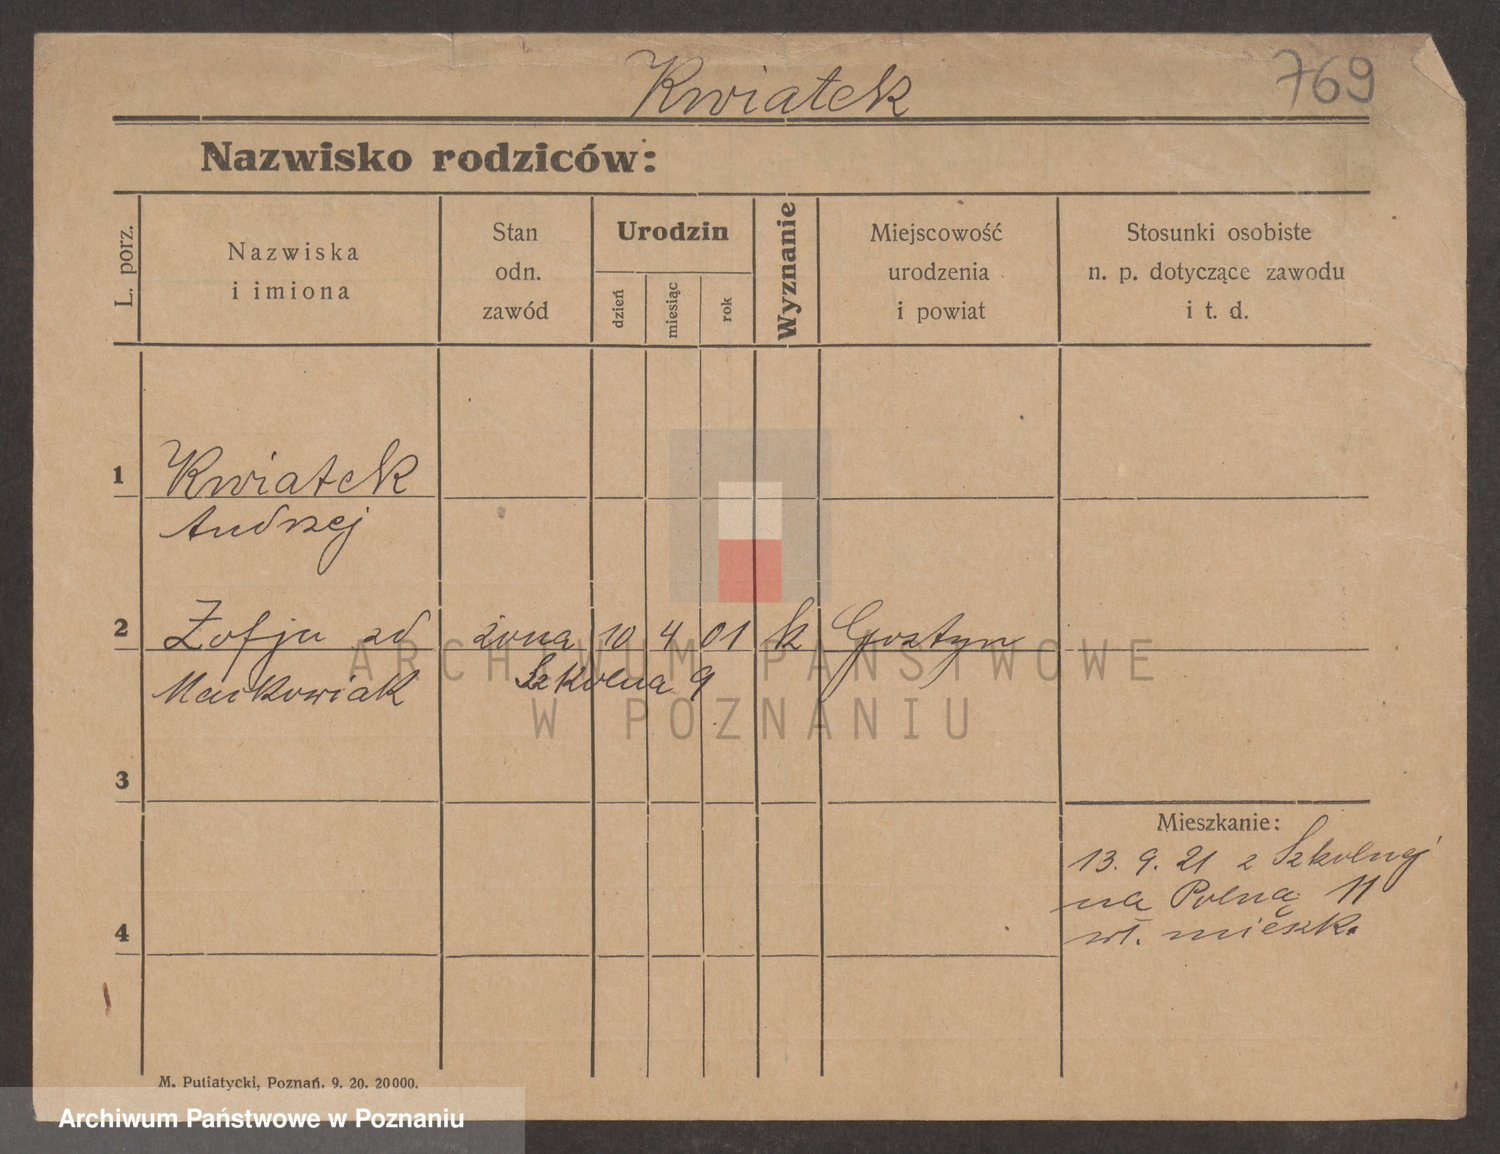 Kwiatek 769
Nazwisko rodziców:
L. porz.
Nazwiska
i imiona
Stan
odn.
zawód
Urodzin
dzień
miesiąc
rok
Wyznanie
Miejscowość
urodzenia
i powiat
Stosunki osobiste
n. p. dotyczące zawodu
i t. d.
1 Kwiatek
Andrzej
2 Zofja zd żona 10 4 01 k Gostyn
Markowiak Szkolna 9
ARCHIWUM PAŃSTWOWE
W POZNANIU
3
Mieszkanie:
13. 9. 21 z Szkolnej
na Polną 11
wł. mieszk.
4
M. Putiatycki, Poznań. 9. 20. 20000.
Archiwum Państwowe w Poznaniu